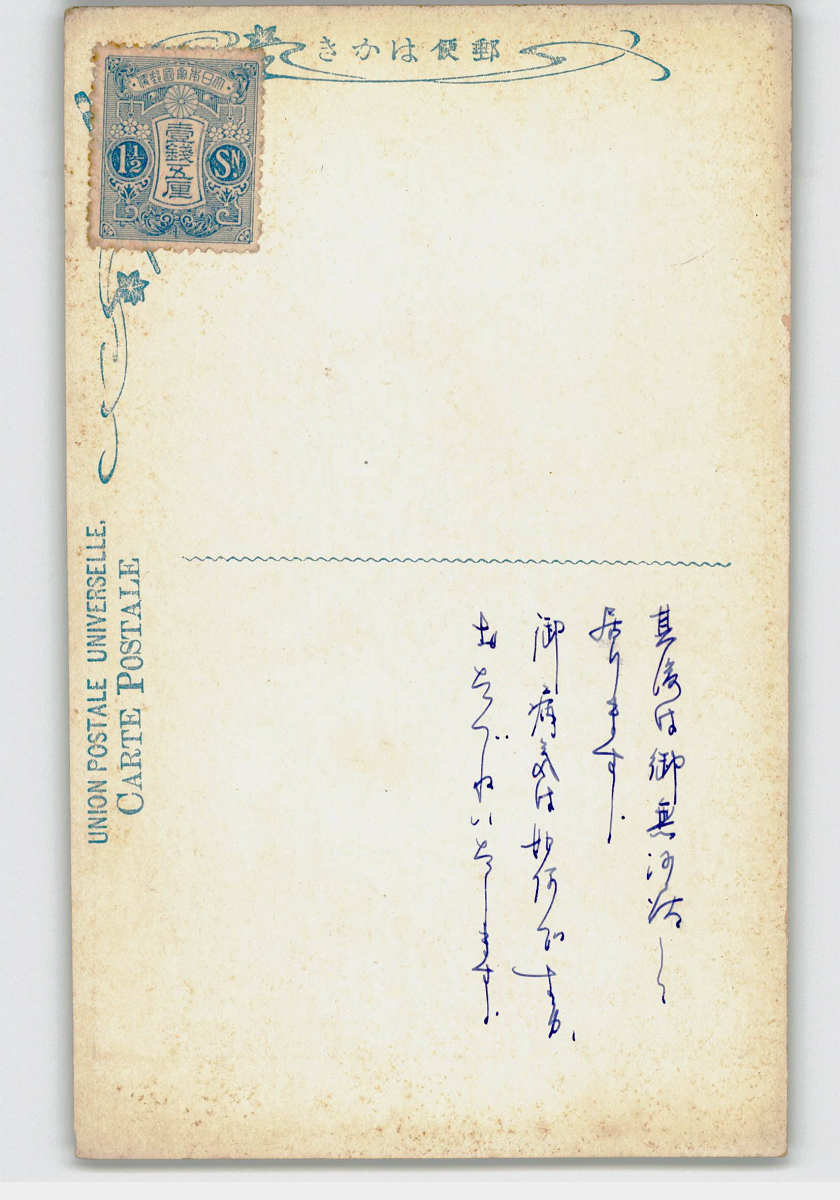 郵便はかき
大日本帝國郵便
壹錢五厘
1½
Sɴ
UNION POSTALE UNIVERSELLE,
CARTE POSTALE
其後は御無沙汰して
居ります.
御病気は如何ですか、
おたづねいたします.